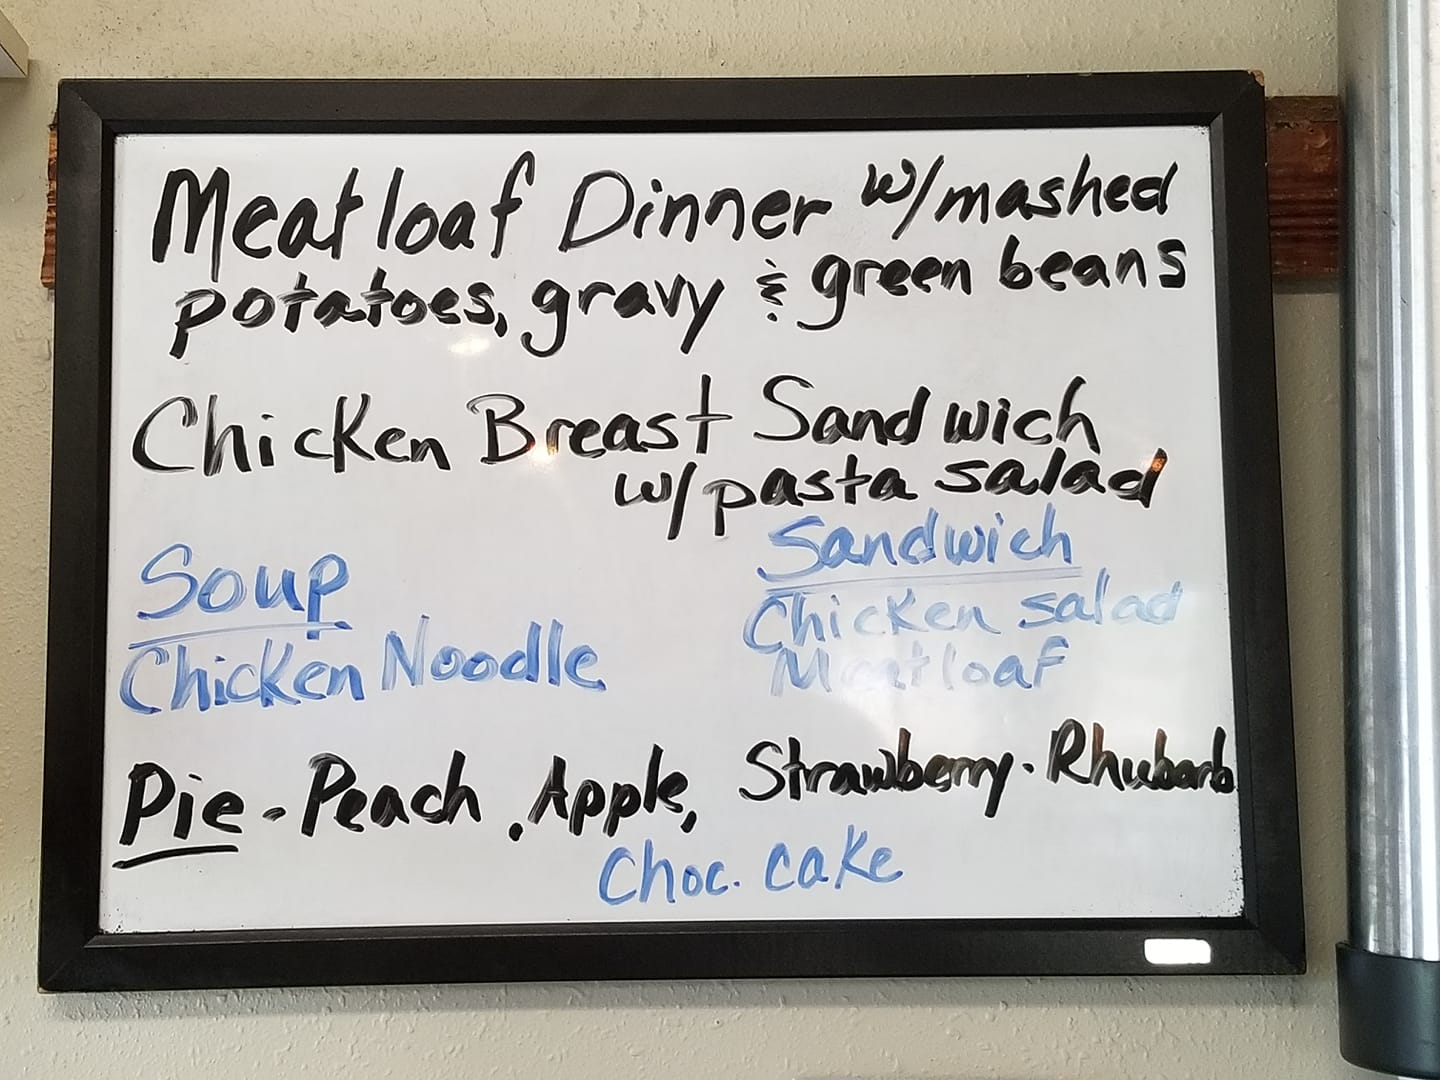 Meatloaf Dinner w/mashed
potatoes, gravy & green beans
Chicken Breast Sandwich
w/pasta salad
Soup
Chicken Noodle
Sandwich
Chicken salad
Meatloaf
Pie - Peach, Apple, Strawberry-Rhubarb
Choc. cake